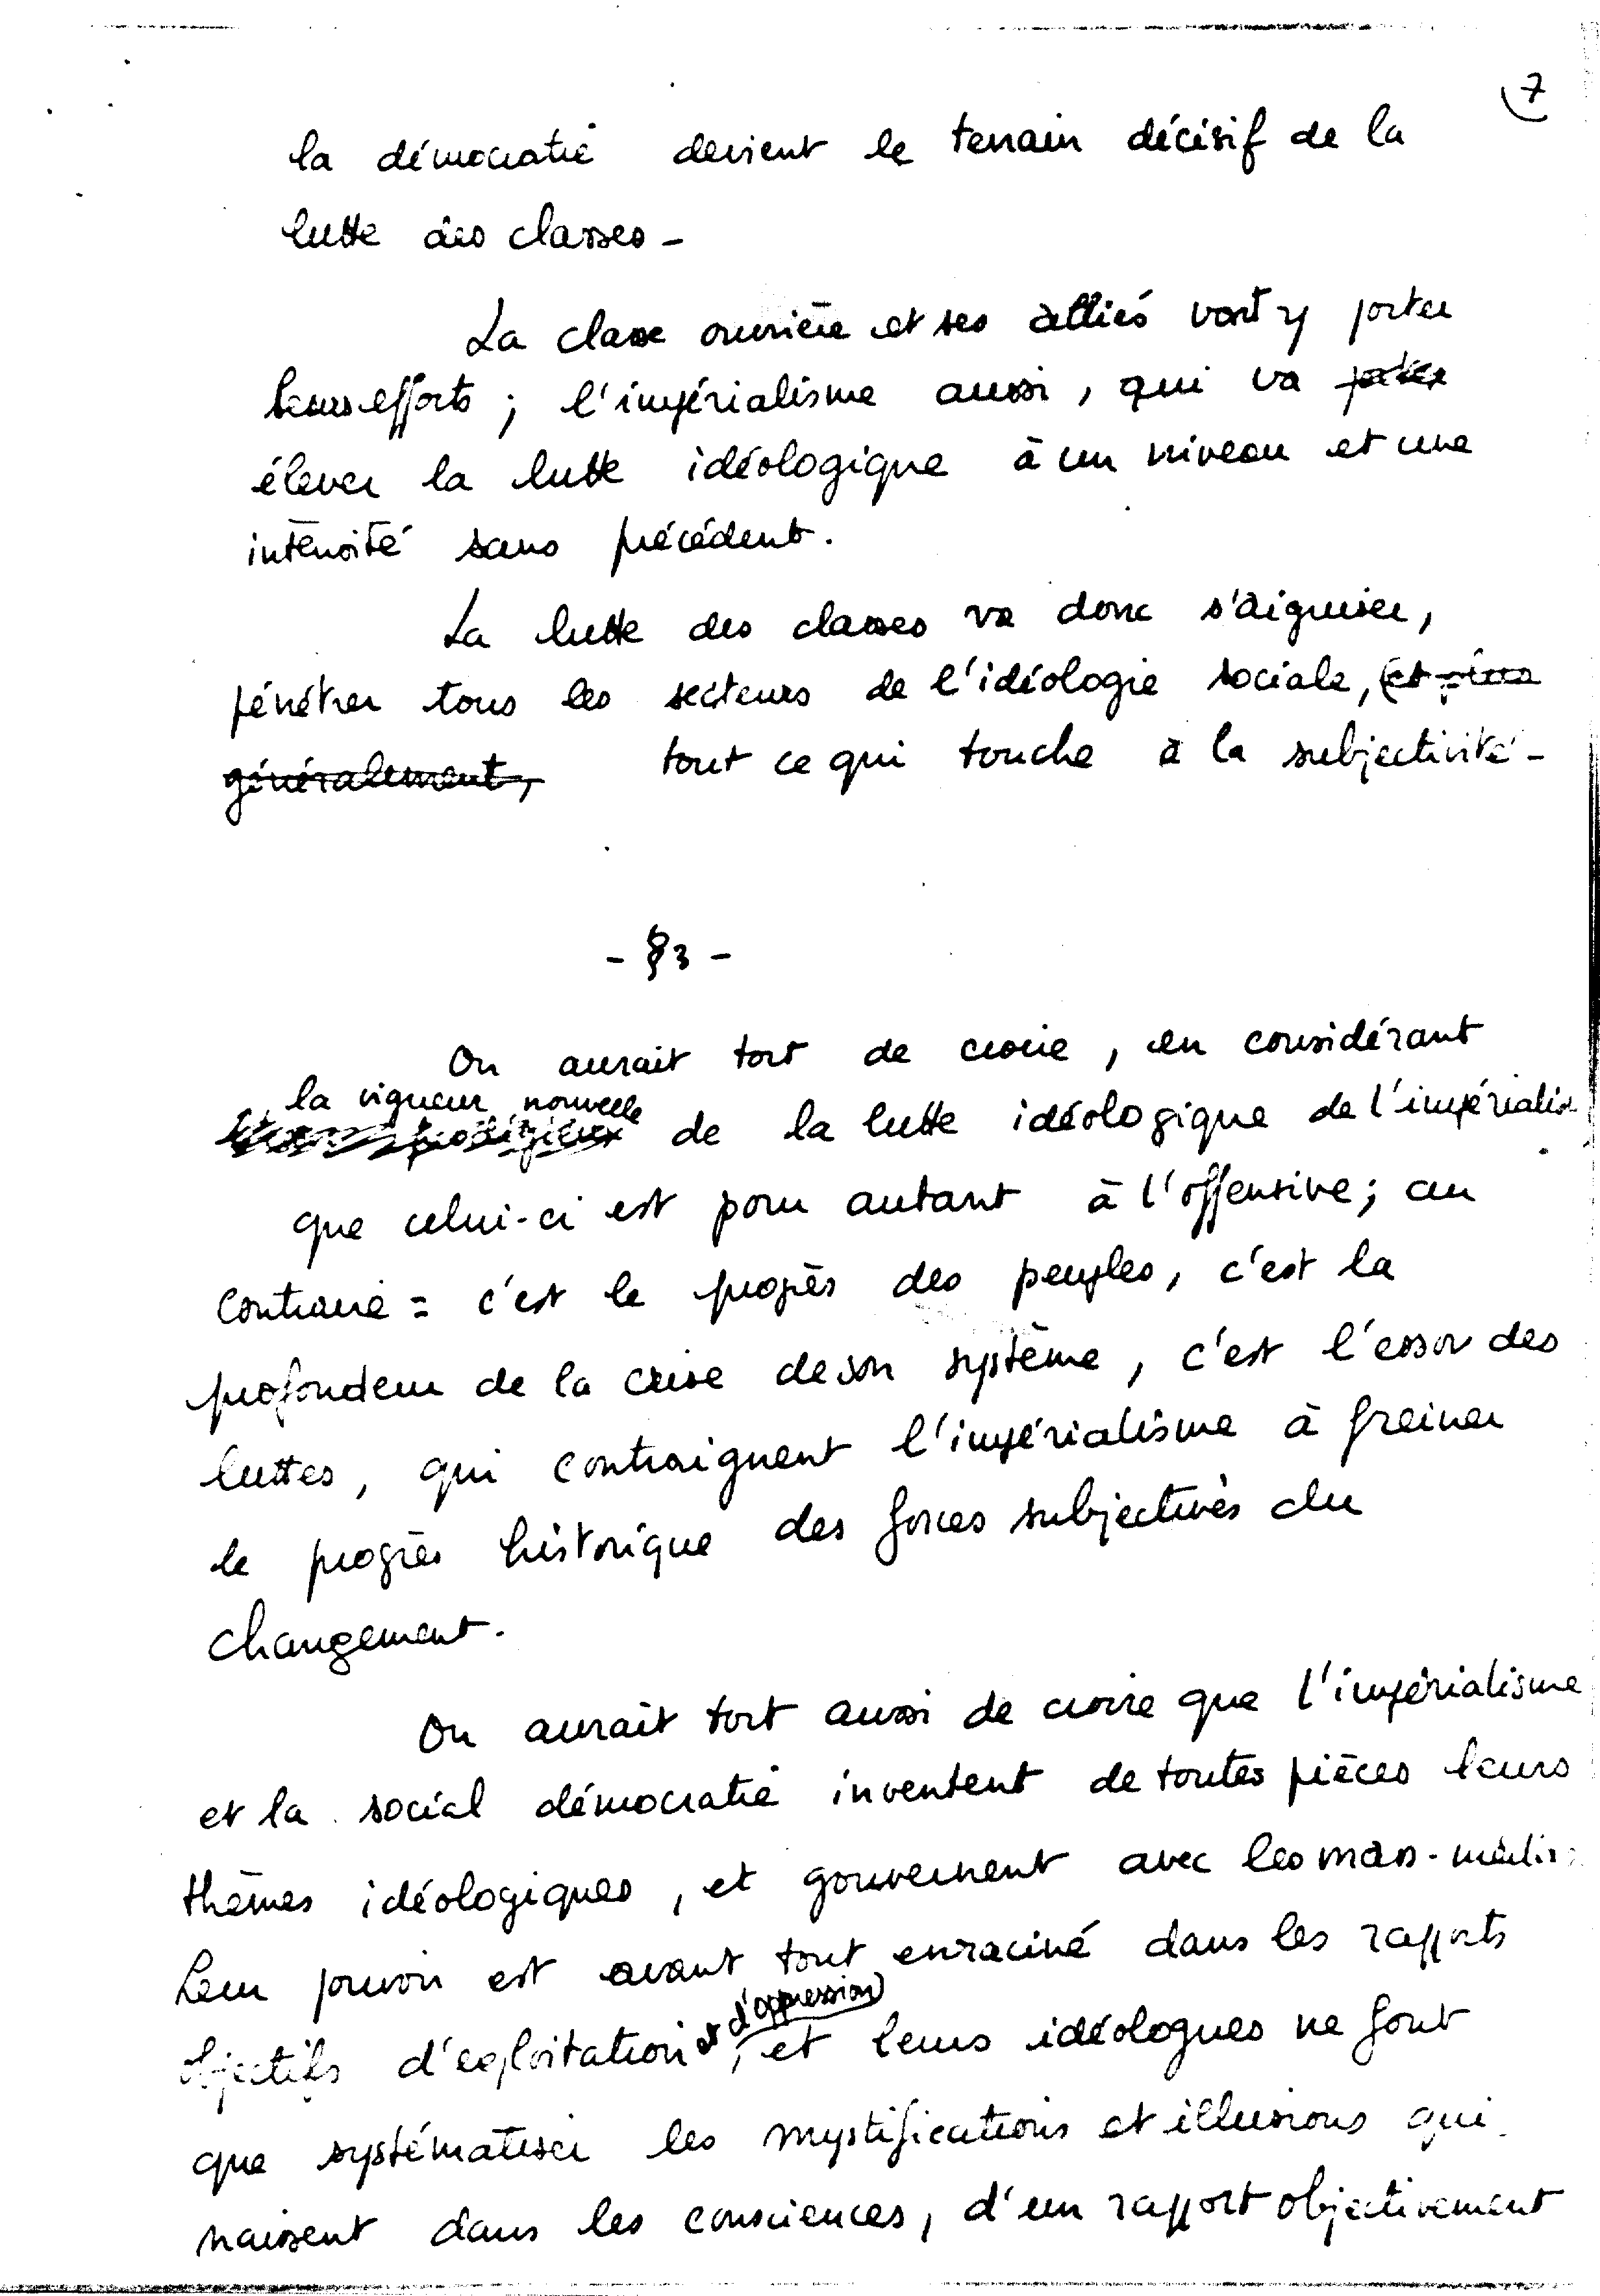 7
la démocratie devient le terrain décisif de la
lutte des classes -
La classe ouvrière et ses alliés vont y porter
leurs efforts ; l'impérialisme aussi, qui va porter
élever la lutte idéologique à un niveau et une
intensité sans précédent.
La lutte des classes va donc s'aiguiser,
pénétrer tous les secteurs de l'idéologie sociale, (et plus
généralement, tout ce qui touche à la subjectivité -
- §3 -
On aurait tort de croire, en considérant
la vigueur nouvelle
prodigieux de la lutte idéologique de l'impérialisme
que celui-ci est pour autant à l'offensive; au
contraire = c'est le progrès des peuples, c'est la
profondeur de la crise de son système, c'est l'essor des
luttes, qui contraignent l'impérialisme à freiner
le progrès historique des forces subjectives du
changement.
On aurait tort aussi de croire que l'impérialisme
et la social démocratie inventent de toutes pièces leurs
thèmes idéologiques, et gouvernent avec les mass-médias
Leur pouvoir est avant tout enraciné dans les rapports
et d'oppression
objectifs d'exploitation, et leurs idéologues ne font
que systématiser les mystifications et illusions qui
naissent dans les consciences, d'un rapport objectivement